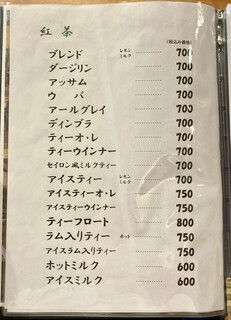 紅茶
(税込み価格)
ブレンド レモン ミルク 700
ダージリン 700
アッサム 700
ウバ 700
アールグレイ 700
ディンブラ 700
ティーオ・レ 700
ティーウインナー 700
セイロン風ミルクティー 700
アイスティー レモン ミルク 700
アイスティーオ・レ 750
アイスティーウインナー 750
ティーフロート 800
ラム入りティー ホット 750
アイスラム入りティー 750
ホットミルク 600
アイスミルク 600